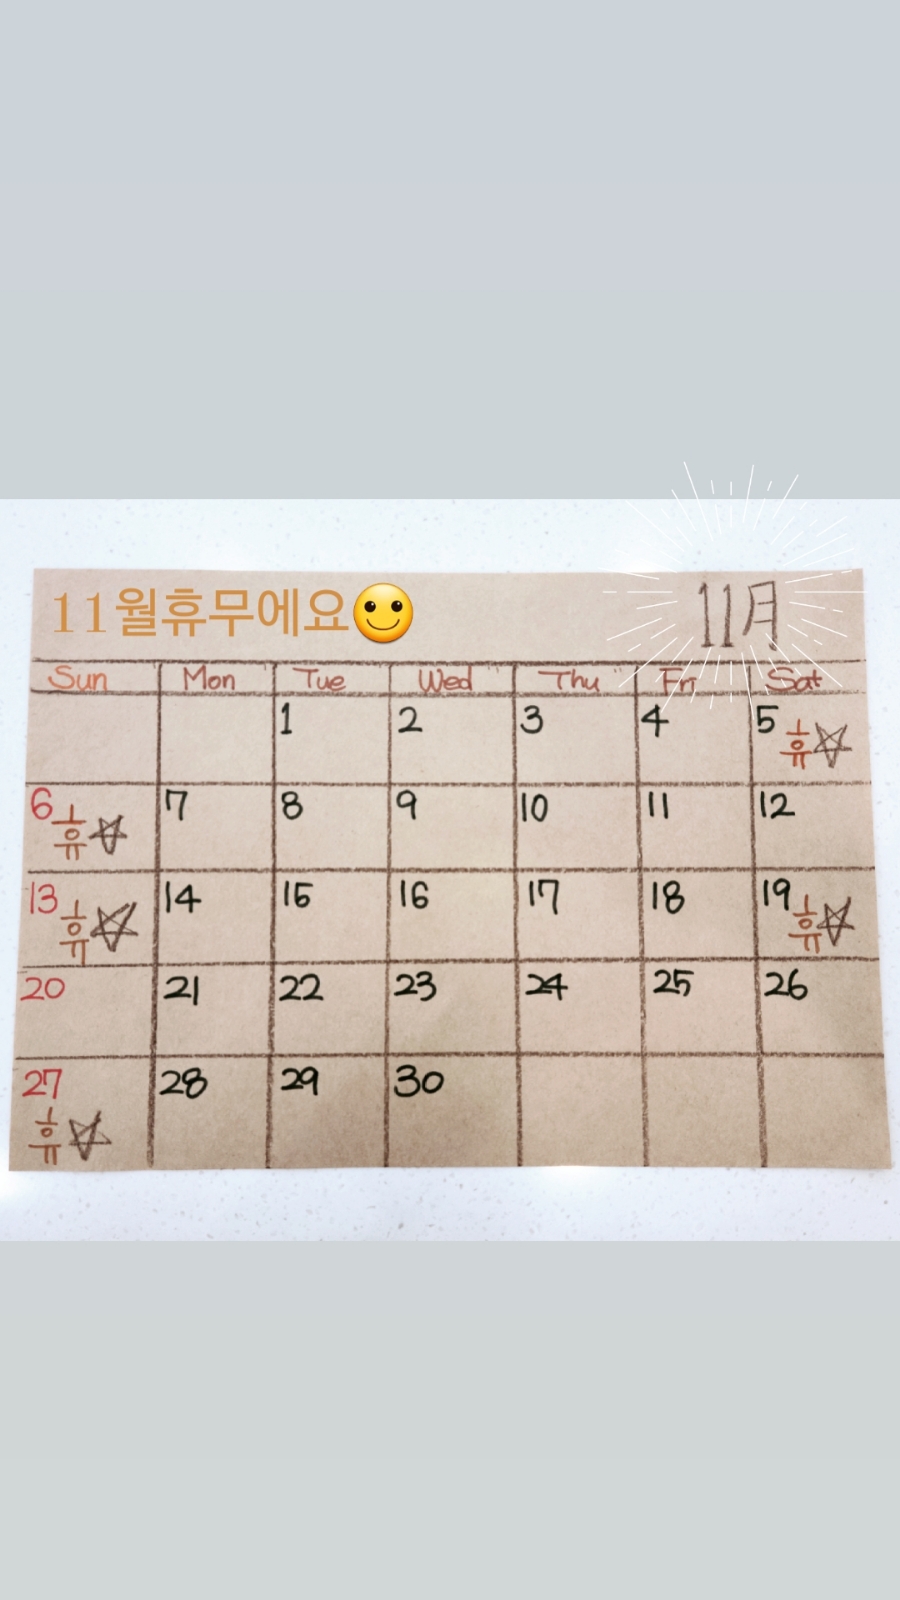 11월휴무에요
11月
Sun Mon Tue Wed Thu Fri Sat
1 2 3 4 5 휴
6 휴 7 8 9 10 11 12
13 휴 14 15 16 17 18 19 휴
20 21 22 23 24 25 26
27 휴 28 29 30